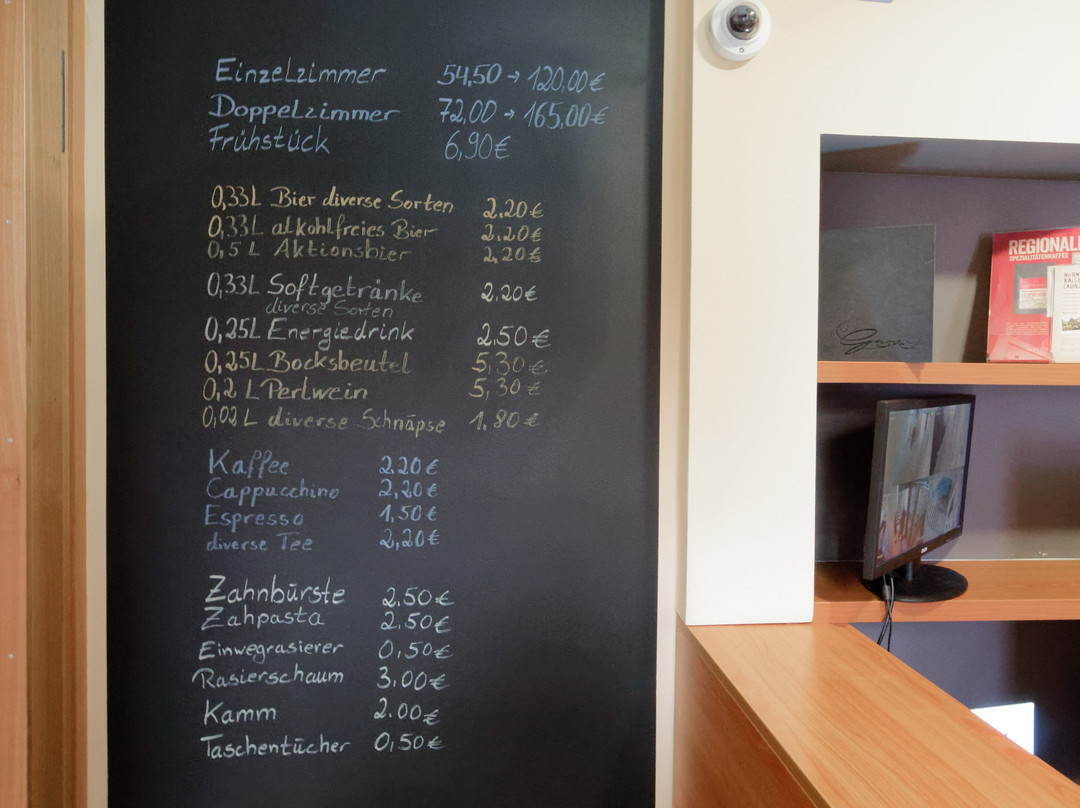 Einzelzimmer 54,50 → 120,00 €
Doppelzimmer 72,00 → 165,00 €
Frühstück 6,90 €
0,33 L Bier diverse Sorten 2.20 €
0,33 L alkoholfreies Bier 2.20 €
0,5 L Aktionsbier 2,20 €
0,33 L Softgetränke 2.20 €
diverse Sorten
0,25 L Energiedrink 2.50 €
0,25 L Bocksbeutel 5,30 €
0,2 L Perlwein 5,30 €
0,02 L diverse Schnäpse 1.80 €
Kaffee 2.20 €
Cappucchino 2,20 €
Espresso 1,50 €
diverse Tee 2,20 €
Zahnbürste 2.50 €
Zahpasta 2.50 €
Einwegrasierer 0,50 €
Rasierschaum 3.00 €
Kamm 2.00 €
Taschentücher 0,50 €
REGIONAL
SPEZIALITÄTENKAFFEE